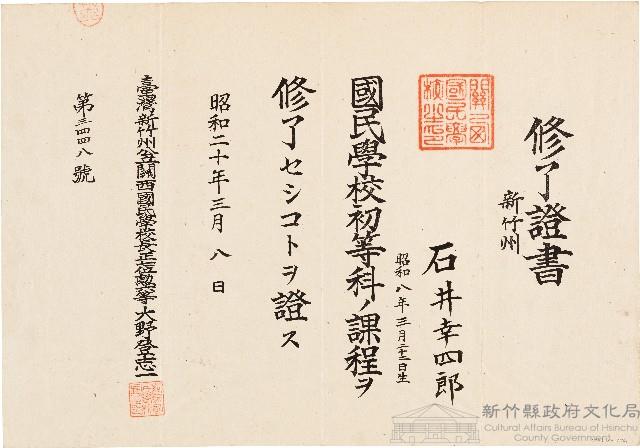 修了證書
新竹州
石井幸四郎
昭和八年三月二十三日生
關西
國民學
校之印
國民學校初等科ノ課程ヲ
修了セシコトヲ證ス
昭和二十年三月八日
臺灣新竹州公立關西國民學校長正位勲等大野登志一
第三四四八號
新竹縣政府文化局
Cultural Affairs Bureau of Hsinchu
County Government